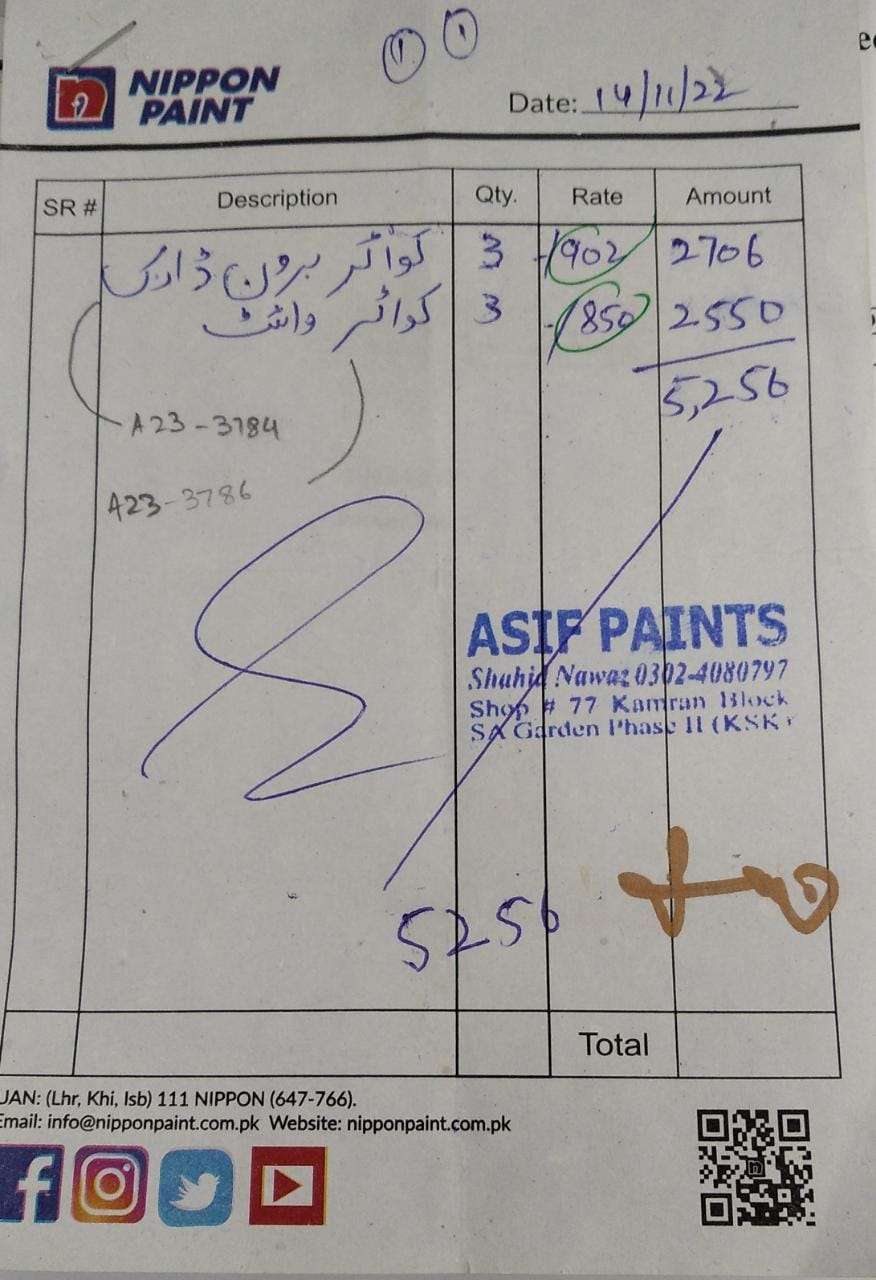 ① ①
NIPPON
PAINT
Date: 14/11/22
SR # Description Qty. Rate Amount
کواٹر برون ڈارک 3 902/- 2706
کواٹر وائٹ 3 850/- 2550
5,256
A23-3784
A23-3786
ASIF PAINTS
Shahid Nawaz 0302-4080797
Shop # 77 Kamran Block
SA Garden Phase II (KSK)
5256
Total
UAN: (Lhr, Khi, Isb) 111 NIPPON (647-766).
Email: info@nipponpaint.com.pk Website: nipponpaint.com.pk